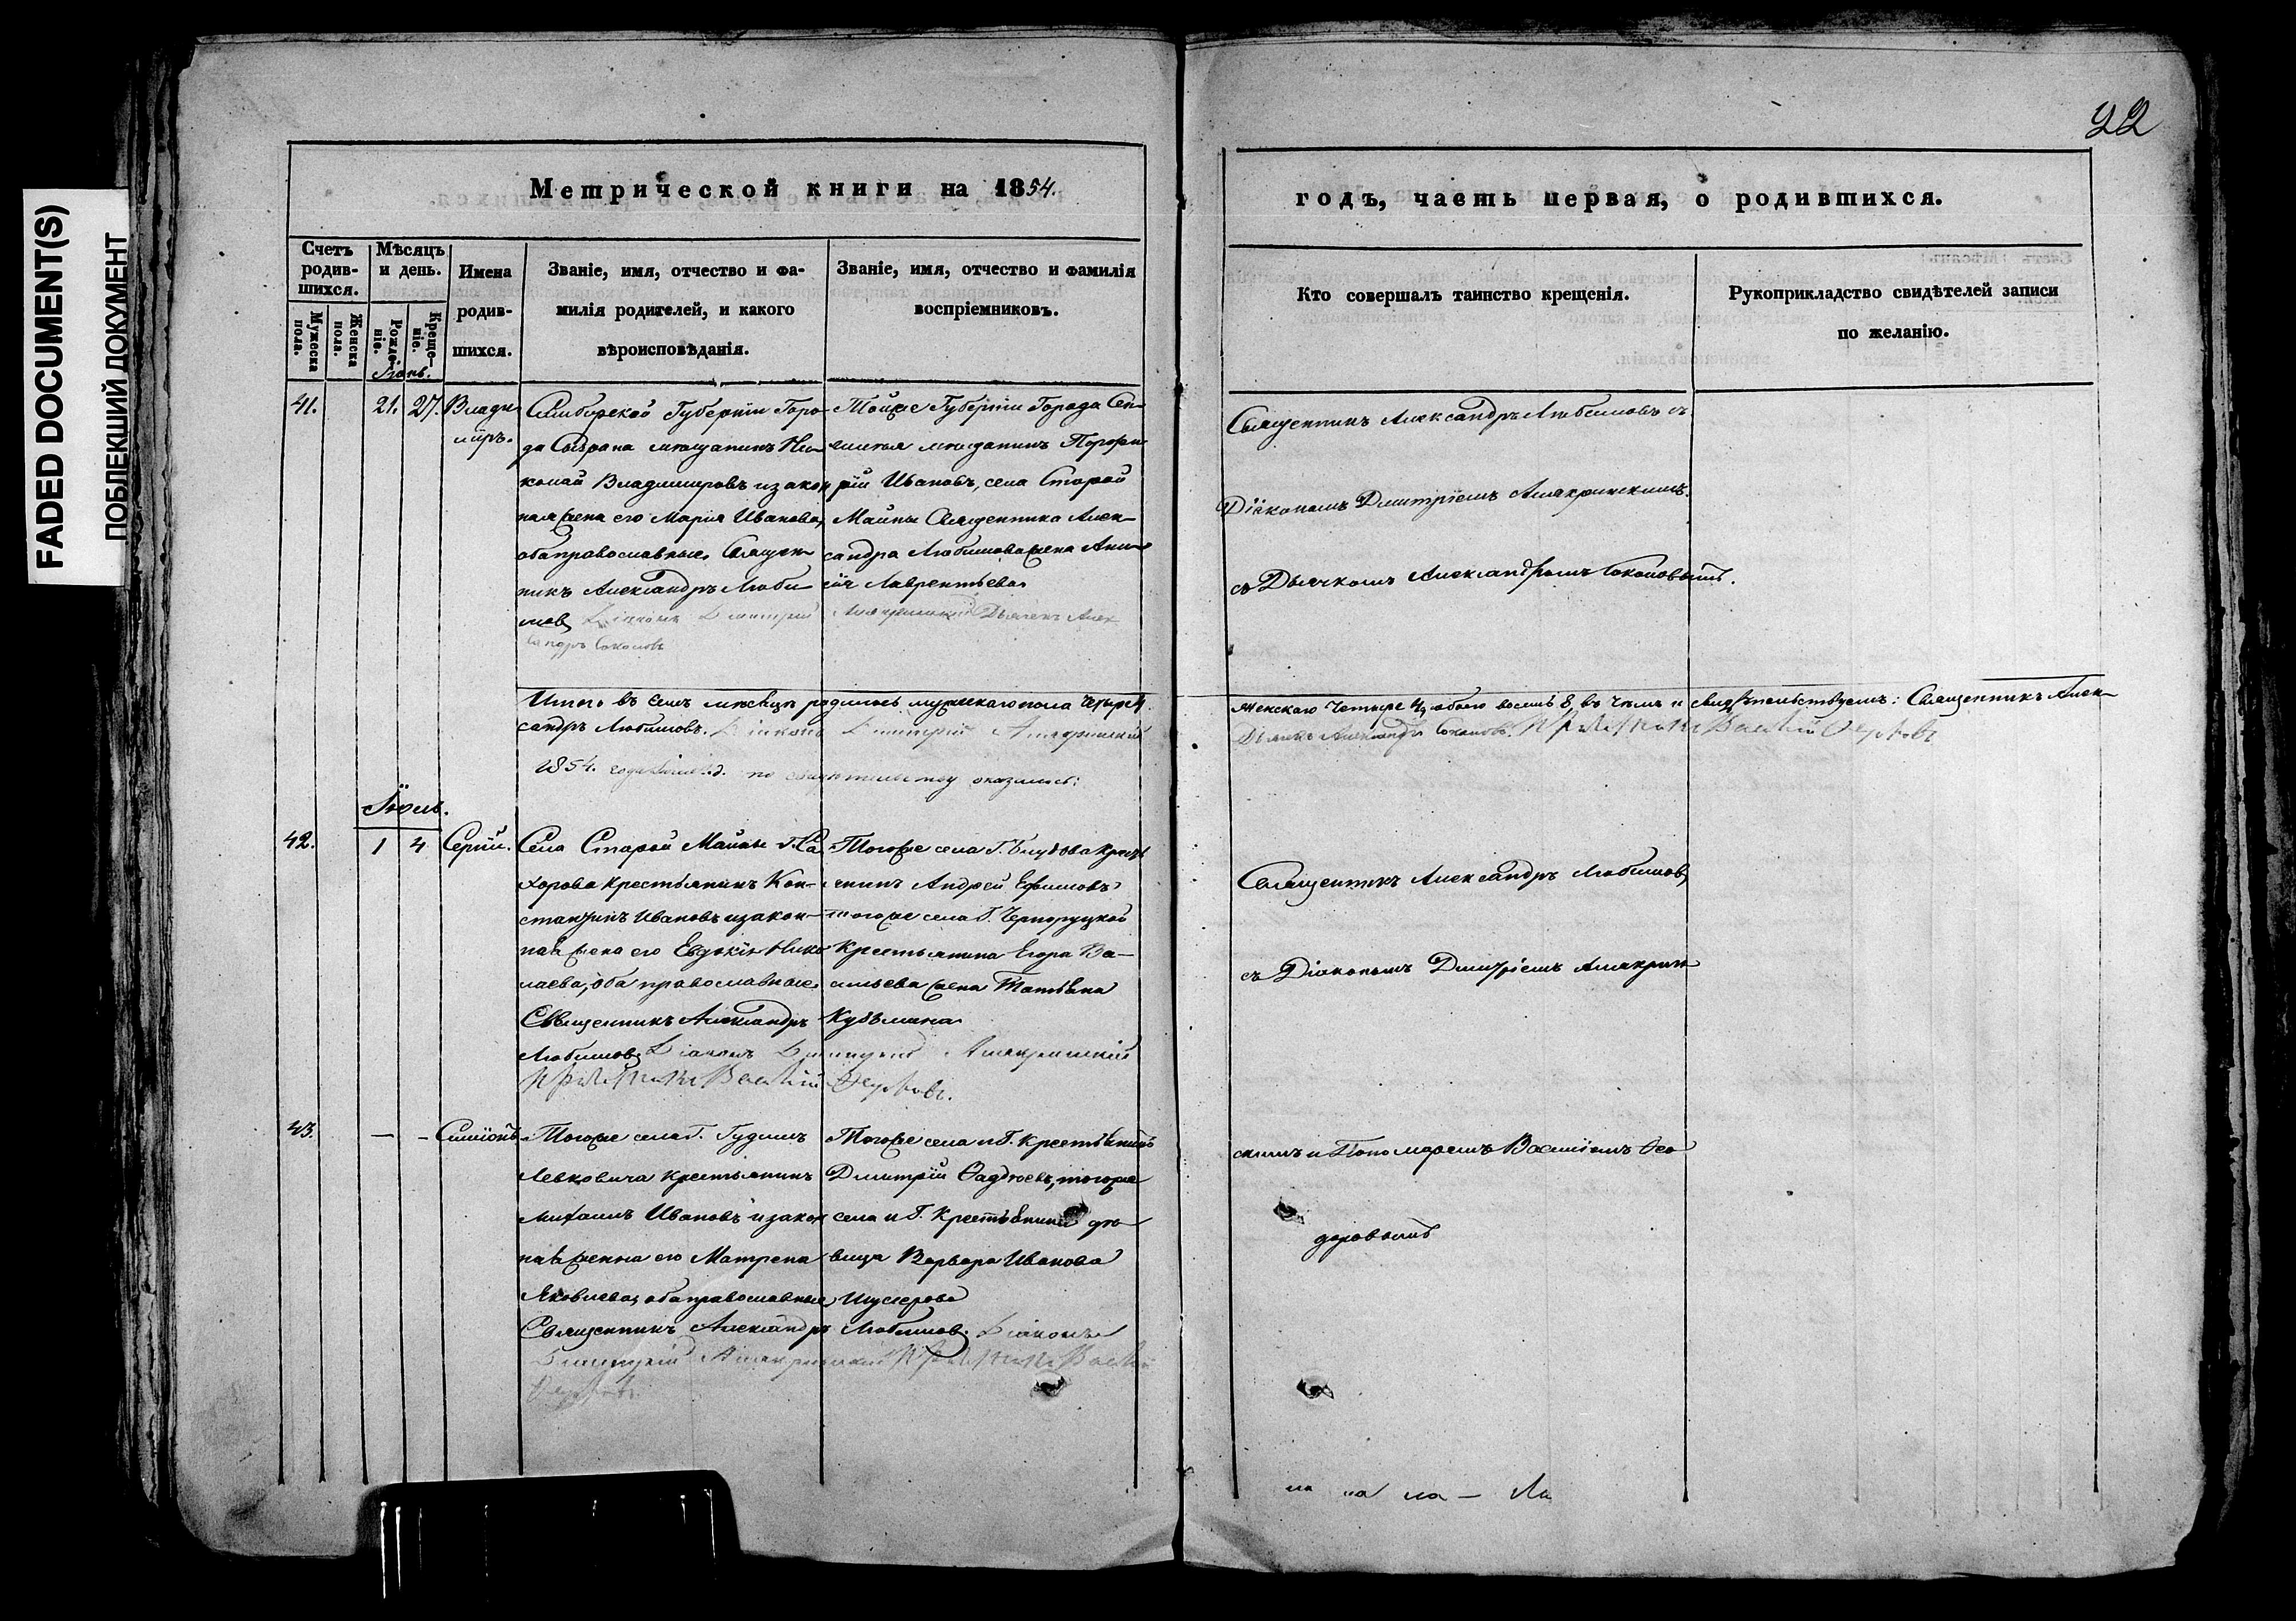 FADED DOCUMENT(S)
ПОБЛЕКШИЙ ДОКУМЕНТ
22
Метрической книги на 1854.
годъ, часть первая, о родившихся.
Счетъ родив-шихся.
Мужеска пола.
Женска пола.
Мѣсяцъ и день.
Рожде-ніе.
Креще-ніе.
Имена родив-шихся.
Званіе, имя, отчество и фа-
милія родителей, и какого
вѣроисповѣданія.
Званіе, имя, отчество и фамилія
воспріемниковъ.
Кто совершалъ таинство крещенія.
Рукоприкладство свидѣтелей записи
по желанію.
Іюнь.
41.
21.
27.
Влади
міръ.
Симбирской Губерніи Горо
да Сызрана мѣщанинъ Ни
колай Владимировъ и закон
ная жена его Марія Иванова,
оба православные. Священ
никъ Александръ Люби
мовъ Діаконъ Димитрій Алякринскій Дьячекъ Алек
сандръ Соколовъ
Тойже Губерніи Города Сен
гилея мѣщанинъ Порфи
рій Ивановъ, села Старой
Майны Священника Алек-
сандра Любимова жена Ани
сія Лаврентьева
Священникъ Александръ Любимовъ съ
Діакономъ Дмитріемъ Алякринскимъ.
съ Дьячкомъ Александромъ Соколовымъ.
Итого въ семъ мѣсяцѣ родилось мужескаго пола четыре 4.
женскаго четыре 4, обоего восемь 8, въ чемъ и свидѣтельствуемъ: Священникъ Алек-
сандръ Любимовъ. Діаконъ Димитрій Алякринскій
Дьячекъ Александръ Соколовъ. Причетникъ Василій Ѳедоровъ
1854. года по свидѣтельству оказались:
Іюль.
42.
1
4
Сергій.
Села Старой Майны г. Са
харова крестьянинъ Кон-
стантинъ Ивановъ и закон-
ная жена его Евдокія Нико
лаева, оба православные
Священникъ Александръ
Любимовъ Діаконъ Димитрій Алякринскій
Причетникъ Василій Ѳедоровъ.
Тогоже села Г. крестья
нинъ Андрей Ефимовъ
тогоже села Г. Черноруцкой
крестьянина Егора Ва-
сильева жена Татьяна
Кузьмина
Священникъ Александръ Любимовъ
съ Діакономъ Дмитріемъ Алякрин
скимъ и Пономаремъ Василіемъ Ѳео
доровымъ
43.
—
-
Симіонъ
Тогоже села Г. Гудимъ
Левковича крестьянинъ
Михаилъ Ивановъ и закон
ная жена его Матрена
Яковлева, оба православные
Священникъ Александръ Любимовъ. Діаконъ
Димитрій Алякринскій Причетникъ Василій
Ѳедоровъ
Тогоже села и Г. крестьянинъ
Дмитрій Ѳаддѣевъ, тогоже
села и Г. крестьянина дѣ
вица Варвара Иванова